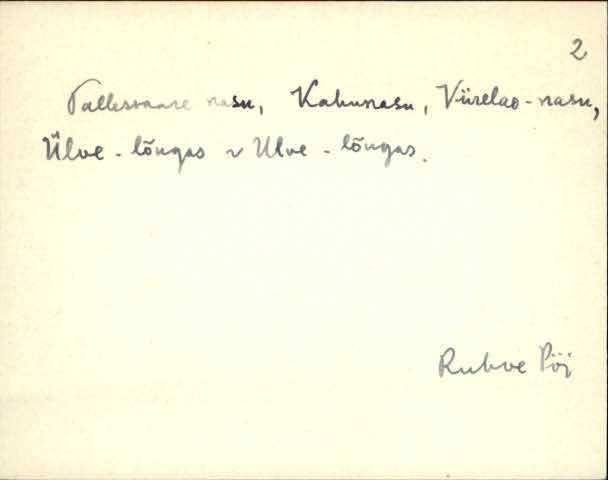 2
Pallessaare nasu, Kahunasu, Viirelao-nasu,
Ülve - lõugas v Ulve - lõugas.
Ruhve Pöi